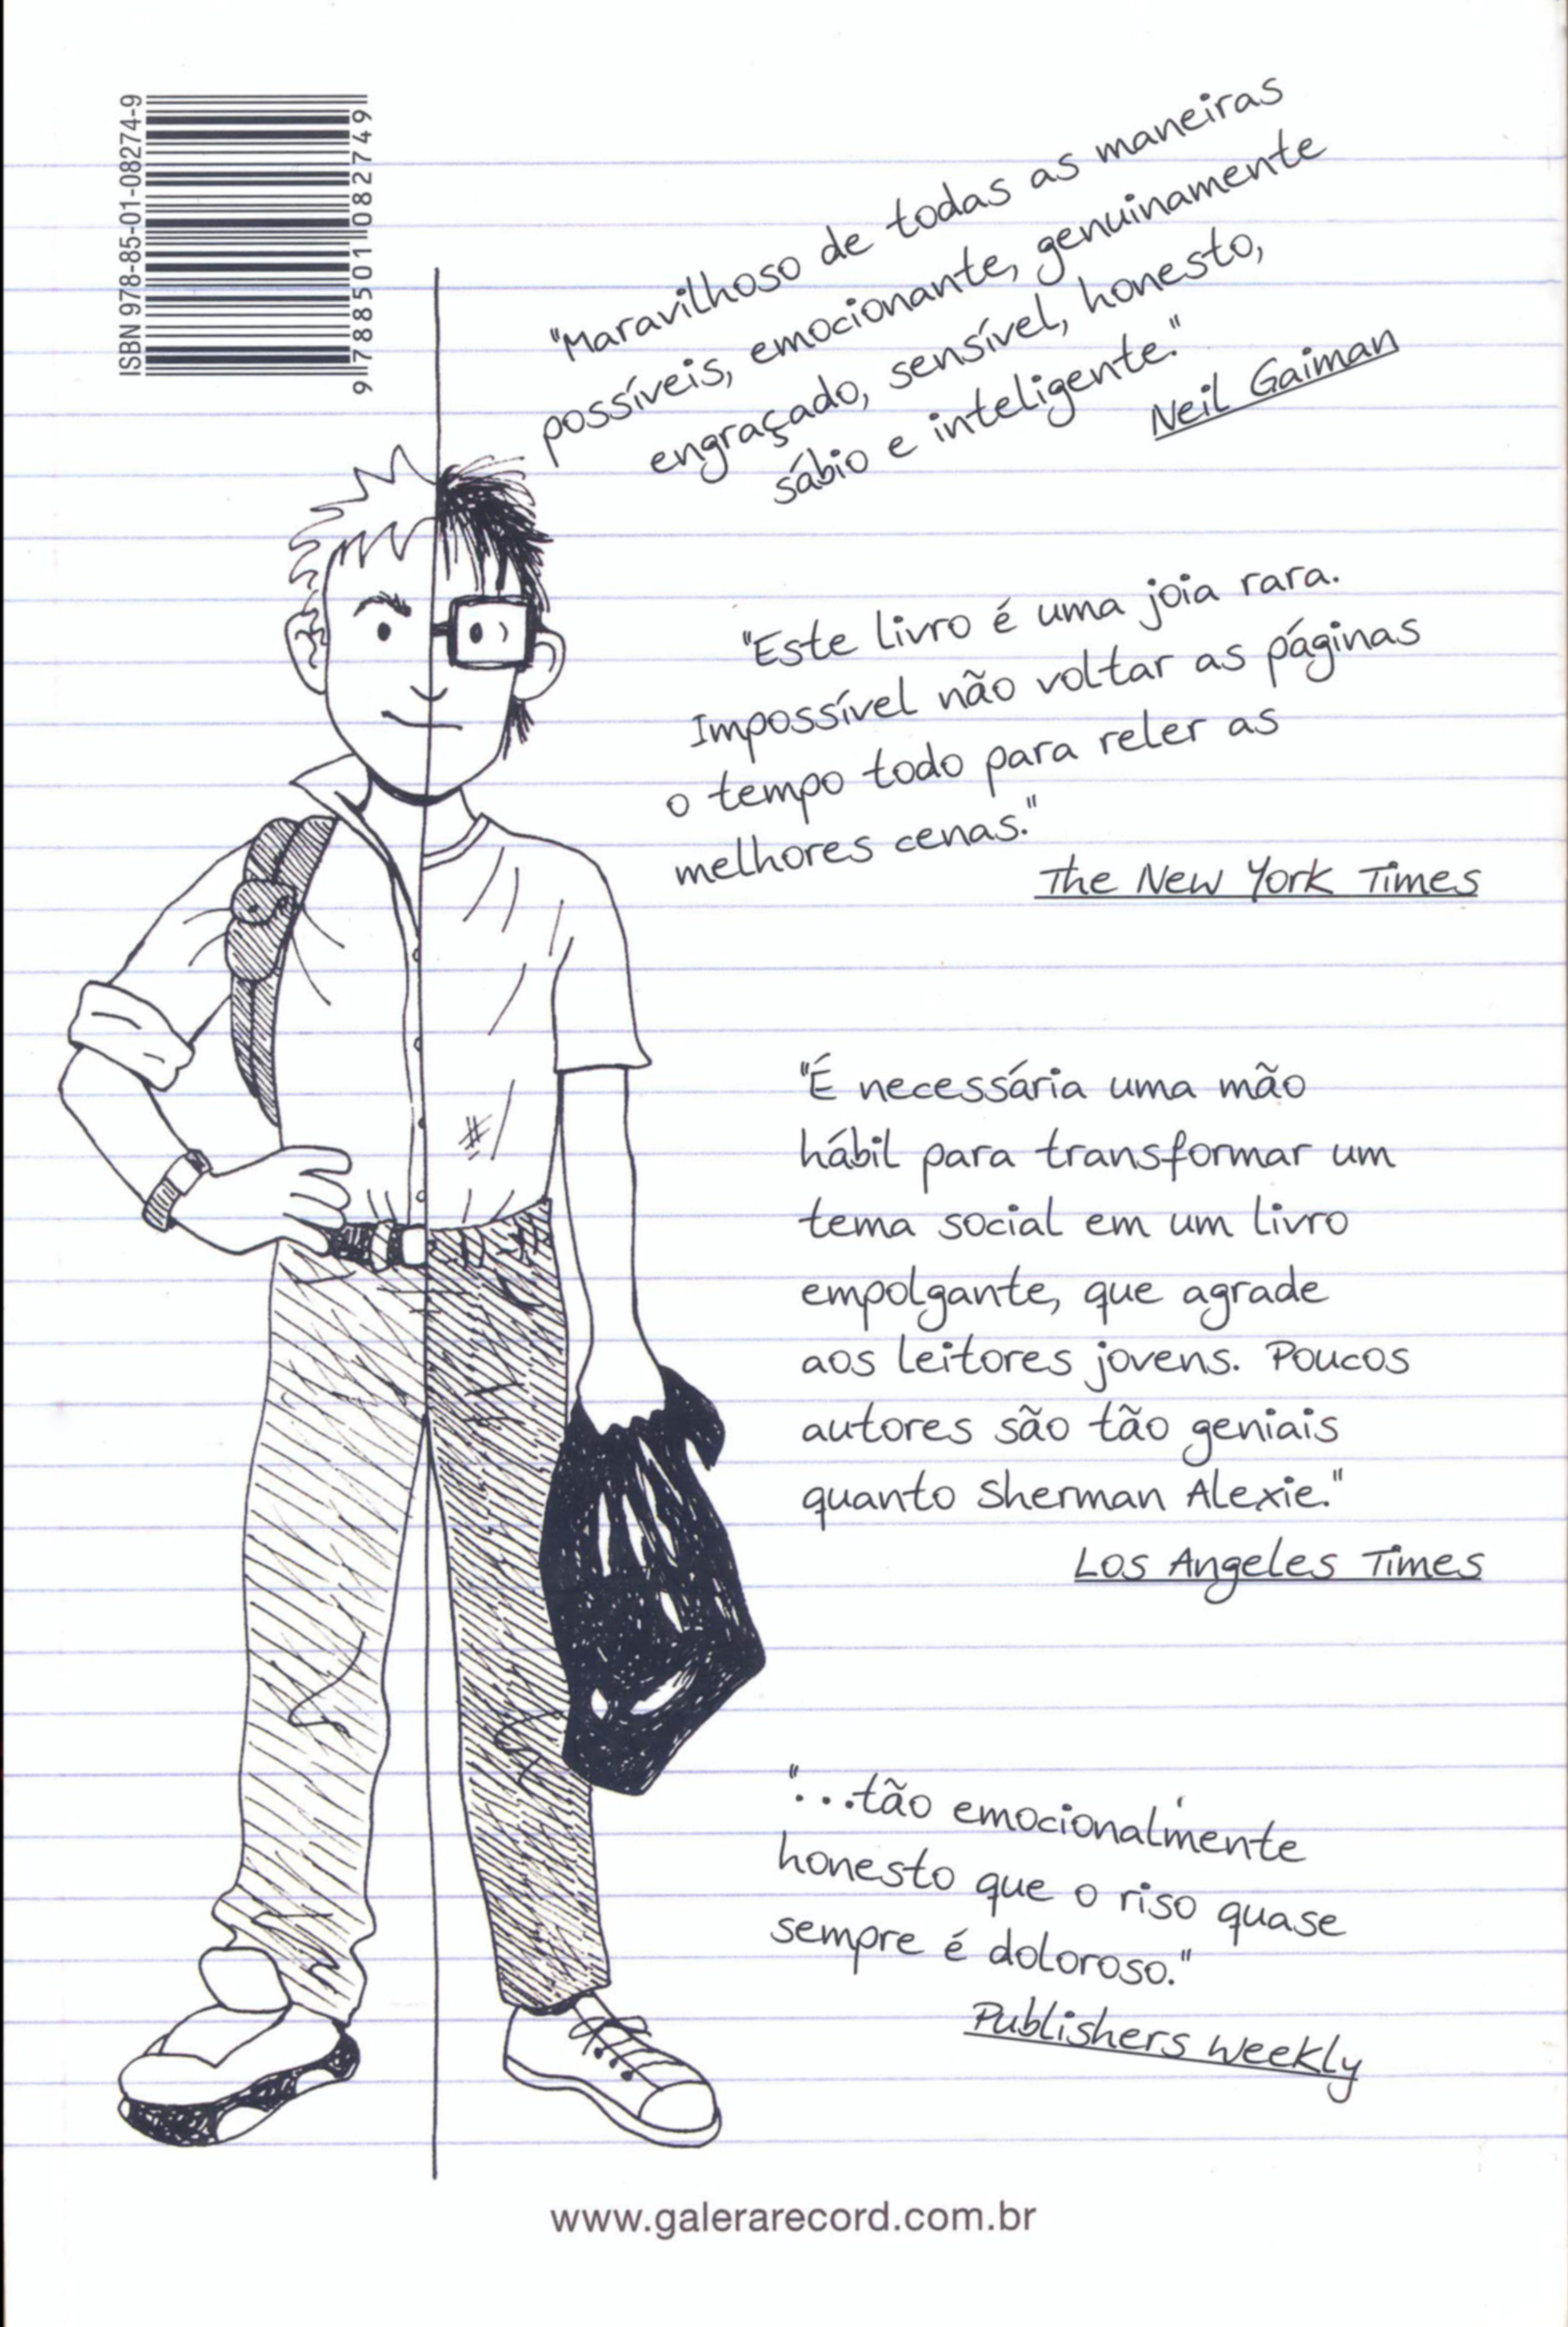 ISBN 978-85-01-08274-9
9 788501 082749
"Maravilhoso de todas as maneiras
possíveis, emocionante, genuinamente
engraçado, sensível, honesto,
sábio e inteligente."
Neil Gaiman
"Este livro é uma joia rara.
Impossível não voltar as páginas
o tempo todo para reler as
melhores cenas."
The New York Times
"É necessária uma mão
hábil para transformar um
tema social em um livro
empolgante, que agrade
aos leitores jovens. Poucos
autores são tão geniais
quanto Sherman Alexie."
Los Angeles Times
"...tão emocionalmente
honesto que o riso quase
sempre é doloroso."
Publishers Weekly
www.galerarecord.com.br